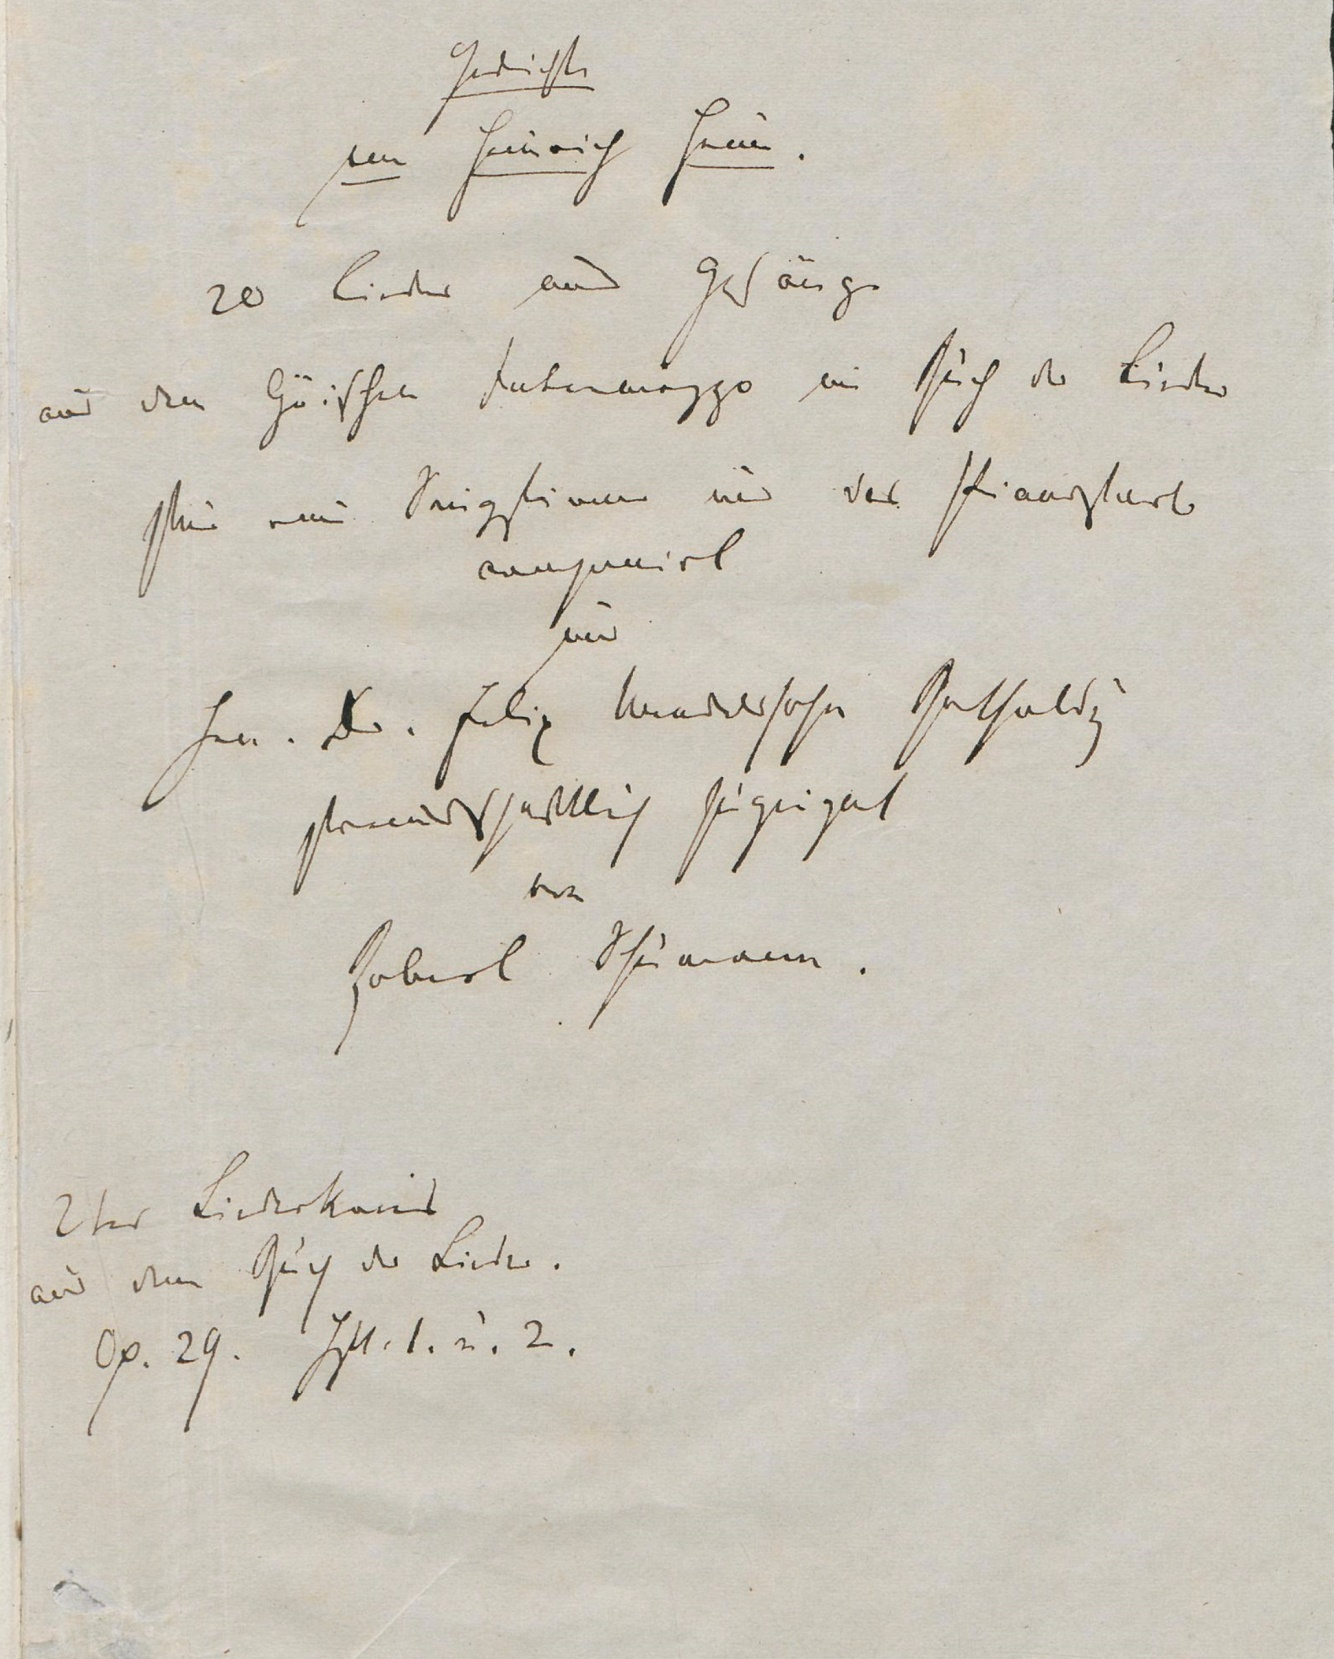 Gedichte
von Heinrich Heine.
20 Lieder und Gesänge
aus dem Lyrischen Intermezzo im Buch der Lieder
für eine Singstimme und das Pianoforte
componirt
und
Hrn. Dr. Felix Mendelssohn Bartholdy
freundschaftlich zugeeignet
von
Robert Schumann.
2ter Liederkreis
aus dem Buch der Lieder.
Op. 29. Hft. 1. u. 2.